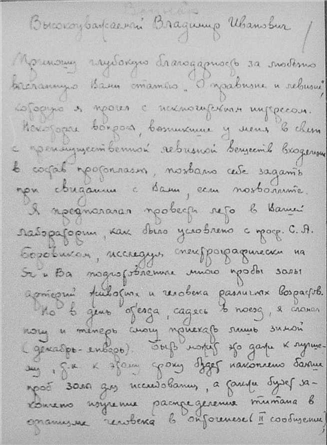 Высокоуважаемый Владимир Иванович
Приношу глубокую благодарность за любезно
высланную Вами статью „О правизне и левизне",
которую я прочел с исключительным интересом.
Некоторые вопросы, возникшие у меня в связи
с преимущественной левизной веществ входящих
в состав протоплазмы, позволю себе задать
при свидании с Вами, если позволите.
Я предполагал провести лето в Вашей
лаборатории, как было условлено с проф. С. А.
Боровиком, исследуя спектрографически на
и Ва подготовленные мною пробы золы
артерий животных и человека различных возрастов.
Но в день отъезда, садясь в поезд, я сломал
ногу и теперь смогу приехать лишь зимой
(декабрь-январь). Быть может это даже к лучше-
му, т.к. к этому сроку будет накоплено больше
проб золы для исследования, а также будет за-
кончено изучение распределение титана в
организме человека в онтогенезе (II сообщение)